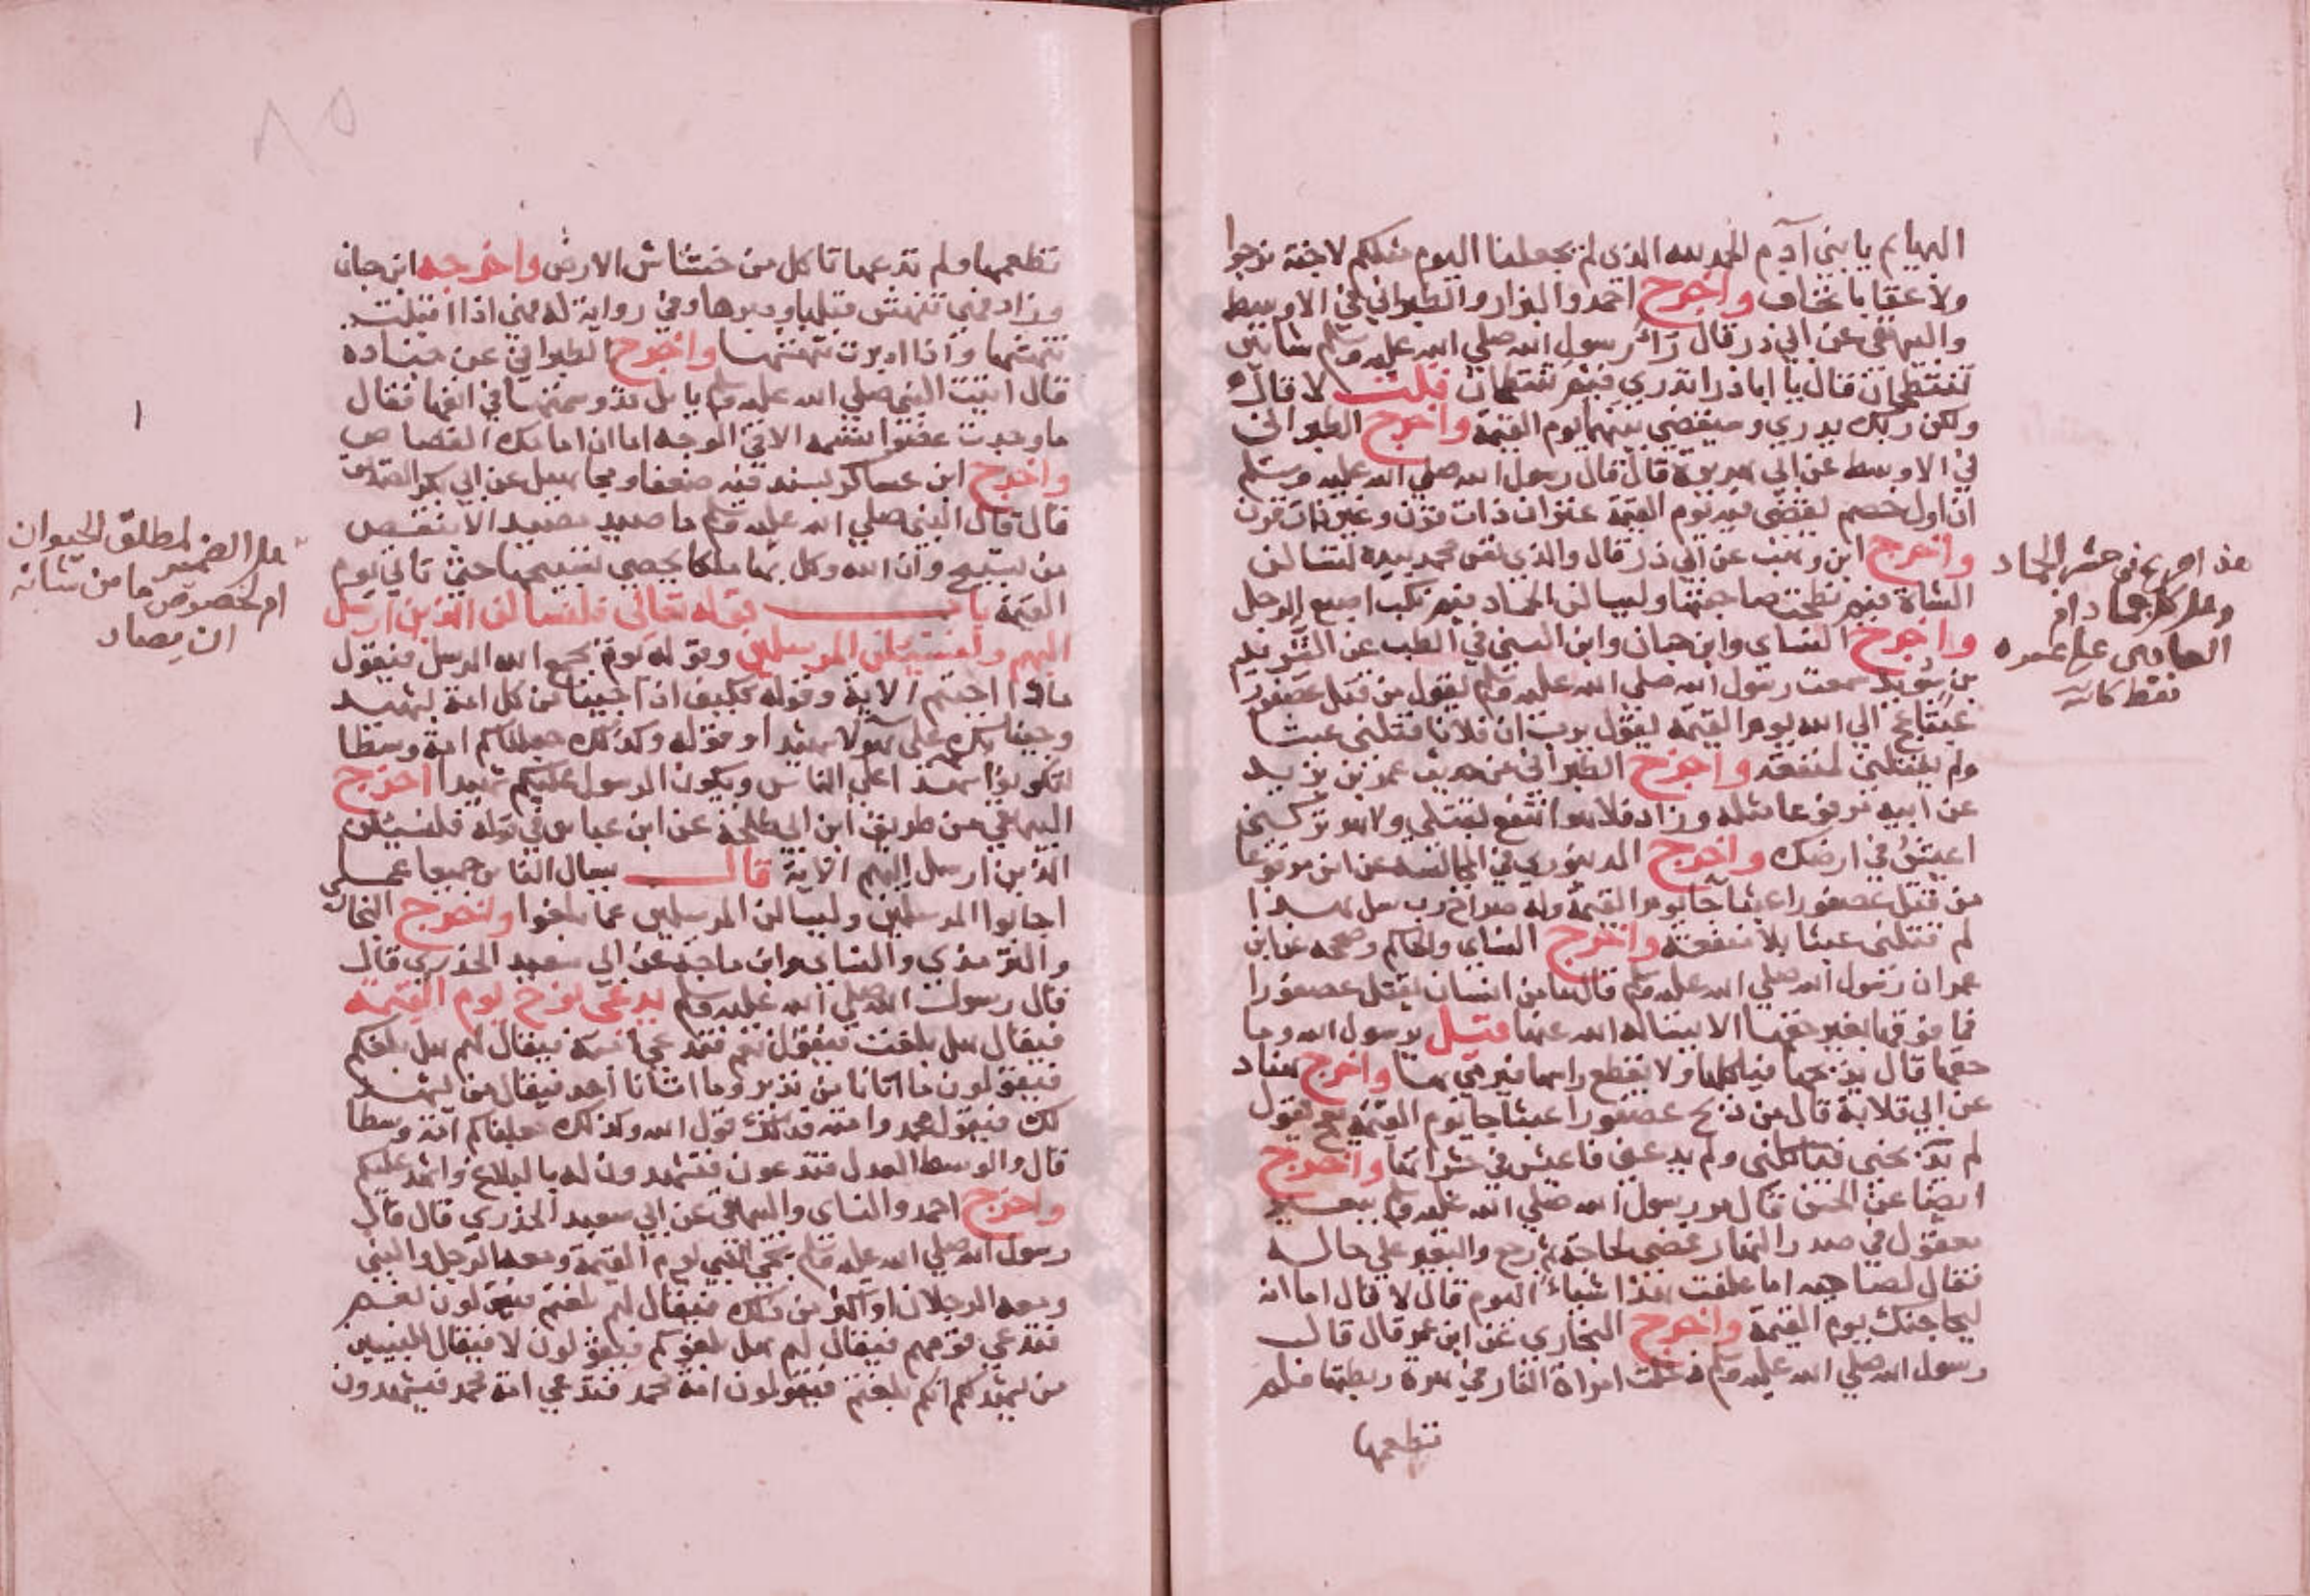 البهايم يا بني آدم الحمد لله الذي لم يجعلنا اليوم مثلكم لا جنة نرجوا
ولا عقابا نخاف واخرج احمد والبزار والطبراني في الاوسط
والبيهقي عن ابي ذر قال رأى رسول الله صلي الله عليه وسلم شاتين
تنتطحان فقال يا ابا ذر اتدري فيم تنتطحان قلت لا قال
ولكن ربك يدري وسيقضي بينهما يوم القيمة واخرج الطبراني
في الاوسط عن ابي هريرة قال قال رسول الله صلي الله عليه وسلم
ان اول خصم يقضي فيه يوم القيمة عنزان ذات قرن وغير ذات قرن
واخرج ابن وهب عن ابي ذر قال والذي نفس محمد بيده لتسالن
الشاة فيم نطحت صاحبتها وليسالن الجماد فيم نكب اصبع الرجل
واخرج النساي وابن حبان وابن السني في الطب عن الشريد
بن سويد سمعت رسول الله صلي الله عليه وسلم يقول من قتل عصفورا
عبثا عج الي الله يوم القيمة يقول يرب ان فلانا قتلني عبثا
ولم يقتلني لمنفعة واخرج الطبراني من حديث عمر بن يزيد
عن ابيه مرفوعا مثله وزاد فلا هو انتفع بقتلي ولا هو تركني
اعيش في ارضك واخرج الدينوري في المجالسة عن انس مرفوعا
من قتل عصفورا عبثا جا يوم القيمة وله صراخ رب سل هذا
لم قتلني عبثا بلا منفعة واخرج النساي والحاكم وصححه عن ابن
عمر ان رسول الله صلي الله عليه وسلم قال ما من انسان يقتل عصفورا
فما فوقها بغير حقها الا يساله الله عنها قيل يرسول الله وما
حقها قال يذبحها فياكلها ولا يقطع راسها فيرمي بها واخرج هناد
عن ابي قلابة قال من ذبح عصفورا عبثا جا يوم القيمة يعج يقول
لم يذبحني فياكلني ولم يدعني فاعيش في حشراتها واخرج
ايضا عن الحسن قال مر رسول الله صلي الله عليه وسلم ببعير
معقول في صدر النهار فقضى لحاجة ثم رجع والبعير علي حاله
فقال لصاحبه اما علفت هذا شياء اليوم قال لا قال اما انه
ليحاجنك يوم القيمة واخرج البخاري عن ابن عمر قال قال
رسول الله صلي الله عليه وسلم دخلت امراة النار في هرة ربطتها فلم
تطعمها
هذا صريح في حشر الجماد
وهل كل جماد ام
العاصي علي غيره
فقط كاتبه
تطعمها ولم تدعها تاكل من خشاش الارض واخرجه ابن حبان
وزاد فهي تنهش قبلها ودبرها وفي رواية له فهي اذا اقبلت
تنهشها واذا ادبرت تنهشها واخرج الطبراني عن جنادة
قال اتيت النبي صلي الله عليه وسلم بابل قد وسمتها في انفها فقال
ما وجدت عضوا تسمه الا في الوجه اما ان امامك القصاص
واخرج ابن عساكر بسند فيه ضعفا ومجاهيل عن ابي بكر الصديق
قال قال النبي صلي الله عليه وسلم ما صيد مصيد الا بنقص
من تسبيح وان الله وكل بها ملكا يحصي تسبيحها حتي تاتي يوم
القيمة باب قوله تعالي فلنسالن الذين ارسل
اليهم ولنسئلن المرسلين وقوله يوم يجمع الله الرسل فيقول
ماذا اجبتم الاية وقوله فكيف اذا جينا من كل امة بشهيد
وجينا بك علي هولا شهيدا وقوله وكذلك جعلناكم امة وسطا
لتكونوا شهدا علي الناس ويكون الرسول عليكم شهيدا اخرج
البيهقي من طريق ابن ابي طلحة عن ابن عباس في قوله فلنسئلن
الذين ارسل اليهم الاية قال يسال الناس جميعا عما
اجابوا المرسلين وليسالن المرسلين عما بلغوا واخرج البخاري
والترمذي والنساي وابن ماجة عن ابي سعيد الخدري قال
قال رسول الله صلي الله عليه وسلم يدعي نوح يوم القيمة
فيقال هل بلغت فيقول نعم فتدعي امته فيقال لهم هل بلغكم
فيقولون ما اتانا من نذير وما اتانا احد فيقال من يشهد
لك فيقول محمد وامته فذلك قول الله وكذلك جعلناكم امة وسطا
قال والوسط العدل فتدعون فتشهدون له بالبلاغ واشهد عليكم
واخرج احمد والنساي والبيهقي عن ابي سعيد الخدري قال قال
رسول الله صلي الله عليه وسلم يجي النبي يوم القيمة ومعه الرجل والنبي
ومعه الرجلان واكثر من ذلك فيقال لهم بلغتم فيقولون نعم
فتدعي قومهم فيقال لهم هل بلغوكم فيقولون لا فيقال للنبيين
من يشهد لكم انكم بلغتم فيقولون امة محمد فتدعي امة محمد فيشهدون
هل الضمير لمطلق الحيوان
ام لخصوص ما من شانه
ان يصاد
٨٥